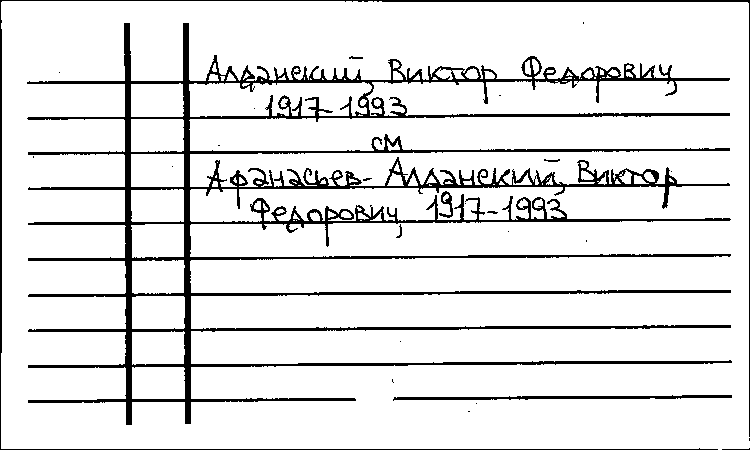 Алданский, Виктор Федорович,
1917-1993
см
Афанасьев-Алданский, Виктор
Федорович, 1917-1993